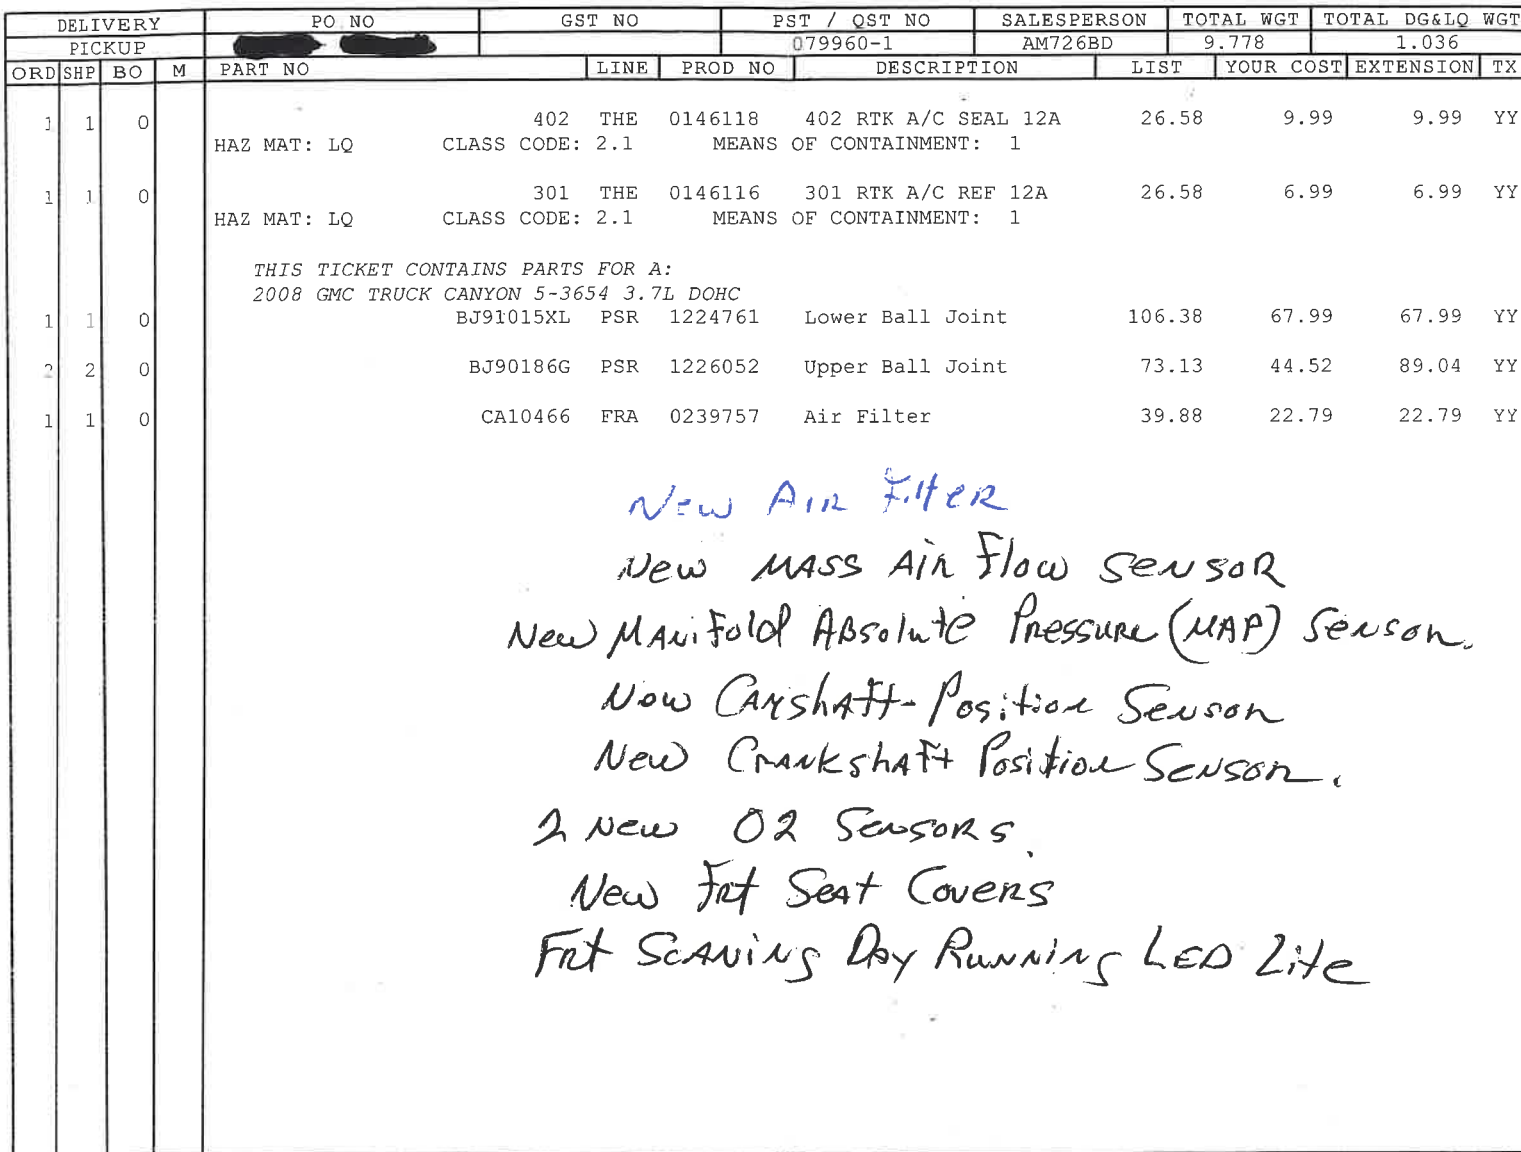 DELIVERY PO NO GST NO PST / QST NO SALESPERSON TOTAL WGT TOTAL DG&LQ WGT
PICKUP 079960-1 AM726BD 9.778 1.036
ORD SHP BO M PART NO LINE PROD NO DESCRIPTION LIST YOUR COST EXTENSION TX
1 1 0 402 THE 0146118 402 RTK A/C SEAL 12A 26.58 9.99 9.99 YY
HAZ MAT: LQ CLASS CODE: 2.1 MEANS OF CONTAINMENT: 1
1 1 0 301 THE 0146116 301 RTK A/C REF 12A 26.58 6.99 6.99 YY
HAZ MAT: LQ CLASS CODE: 2.1 MEANS OF CONTAINMENT: 1
THIS TICKET CONTAINS PARTS FOR A:
2008 GMC TRUCK CANYON 5-3654 3.7L DOHC
1 1 0 BJ91015XL PSR 1224761 Lower Ball Joint 106.38 67.99 67.99 YY
2 2 0 BJ90186G PSR 1226052 Upper Ball Joint 73.13 44.52 89.04 YY
1 1 0 CA10466 FRA 0239757 Air Filter 39.88 22.79 22.79 YY
New Air Filter
New MASS Air Flow Sensor
New Manifold Absolute Pressure (MAP) Sensor.
New Camshaft-Position Sensor
New Crankshaft Position Sensor.
2 New O2 Sensors.
New Frt Seat Covers
Frt Scaning Day Running LED Lite